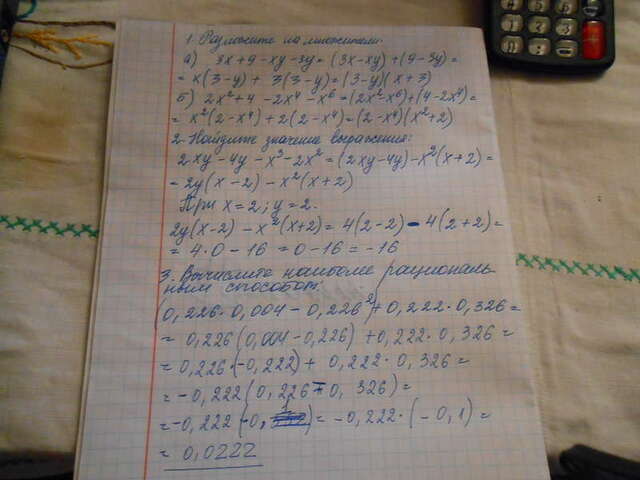 1. Разложите на множители:
а) 3x+9-xy-3y=(3x-xy)+(9-3y)=
= x(3-y)+ 3(3-y)=(3-y)(x+3)
Б) 2x²+4-2x⁴-x⁶=(2x²-x⁶)+(4-2x⁴)=
= x²(2-x⁴)+2(2-x⁴)=(2-x⁴)(x²+2)
2. Найдите значение выражения:
2xy-4y-x³-2x²=(2xy-4y)-x²(x+2)=
= 2y(x-2)-x²(x+2)
При x=2; y=2.
2y(x-2)-x²(x+2)=4(2-2)-4(2+2)=
= 4·0-16=0-16=-16
3. Вычислите наиболее рациональ-
ным способом:
(0,226·0,004-0,226²)+0,222·0,326=
= 0,226(0,004-0,226)+0,222·0,326=
= 0,226·(-0,222)+0,222·0,326=
= -0,222(0,226-0,326)=
= -0,222(-0,1)= -0,222·(-0,1)=
= 0,0222
5
6
2
3